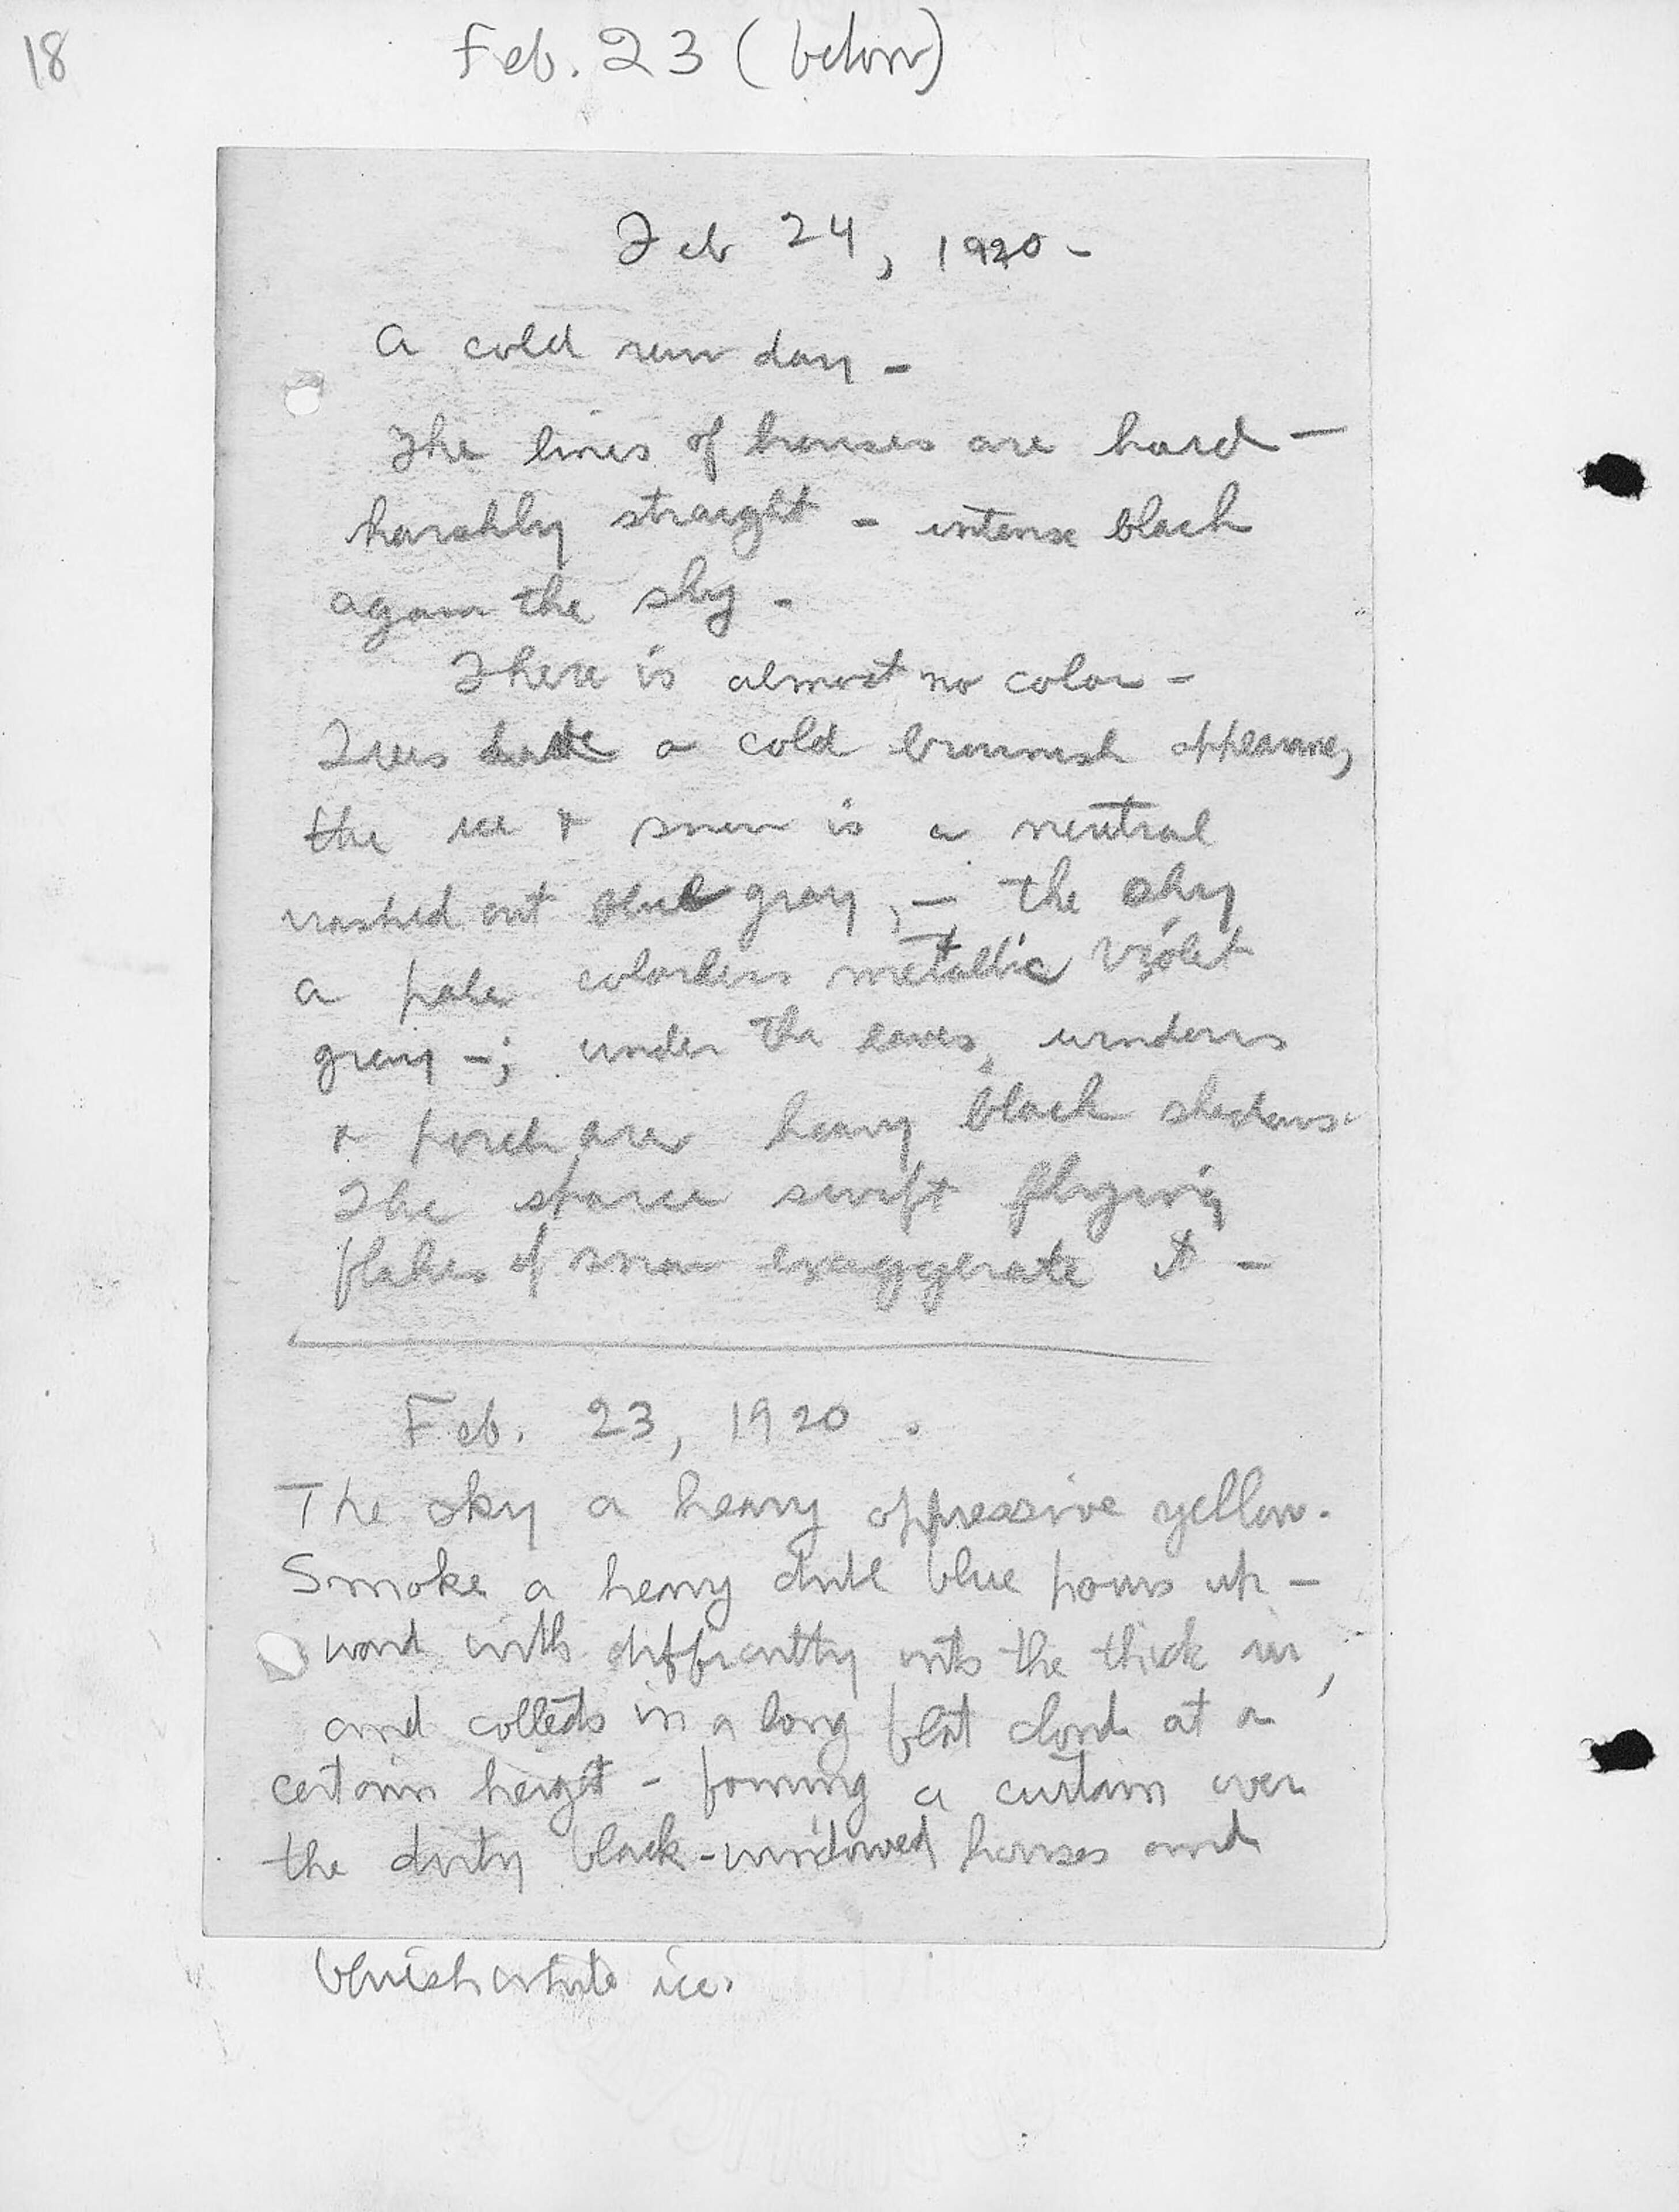 18
Feb. 23 (below)
Feb 24, 1920 -
A cold raw day -
The lines of houses are hard —
harshly straight - intense black
again the sky -
There is almost no color -
Trees have a cold brownish appearance,
the ice & snow is a neutral
washed out blue gray, — the sky
a pale colorless metallic violet
grey -; under the eaves, windows
& porch are heavy black shadows.
The sparse swift flying
flakes of snow exaggerate it -
Feb. 23, 1920.
The sky a heavy oppressive yellow.
Smoke a heavy dull blue pours up -
ward with difficulty into the thick air,
and collects in a long flat cloud at a
certain height - forming a curtain over
the dirty black-windowed houses and
bluish white ice.